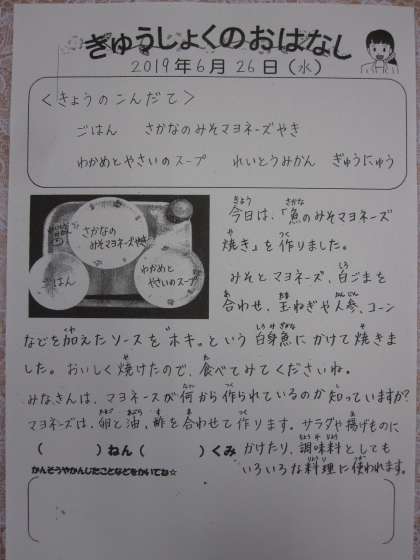 ぎゅうしょくのおはなし
2019年6月26日（水）
＜きょうのこんだて＞
ごはん　さかなのみそマヨネーズやき
わかめとやさいのスープ　れいとうみかん　ぎゅうにゅう
さかなの
みそマヨネーズやき
ごはん
わかめと
やさいのスープ
今日は、「魚のみそマヨネーズ
焼き」を作りました。
みそとマヨネーズ、白ごまを
合わせ、玉ねぎや人参、コーン
などを加えたソースを"ホキ"という白身魚にかけて焼きま
した。おいしく焼けたので、食べてみてくださいね。
みなさんは、マヨネーズが何から作られているのか知っていますか？
マヨネーズは、卵と油、酢を合わせて作ります。サラダや揚げものに
かけたり、調味料としても
いろいろな料理に使われます。
（　　　）ねん（　　　）くみ
かんそうやかんじたことなどをかいてね☆